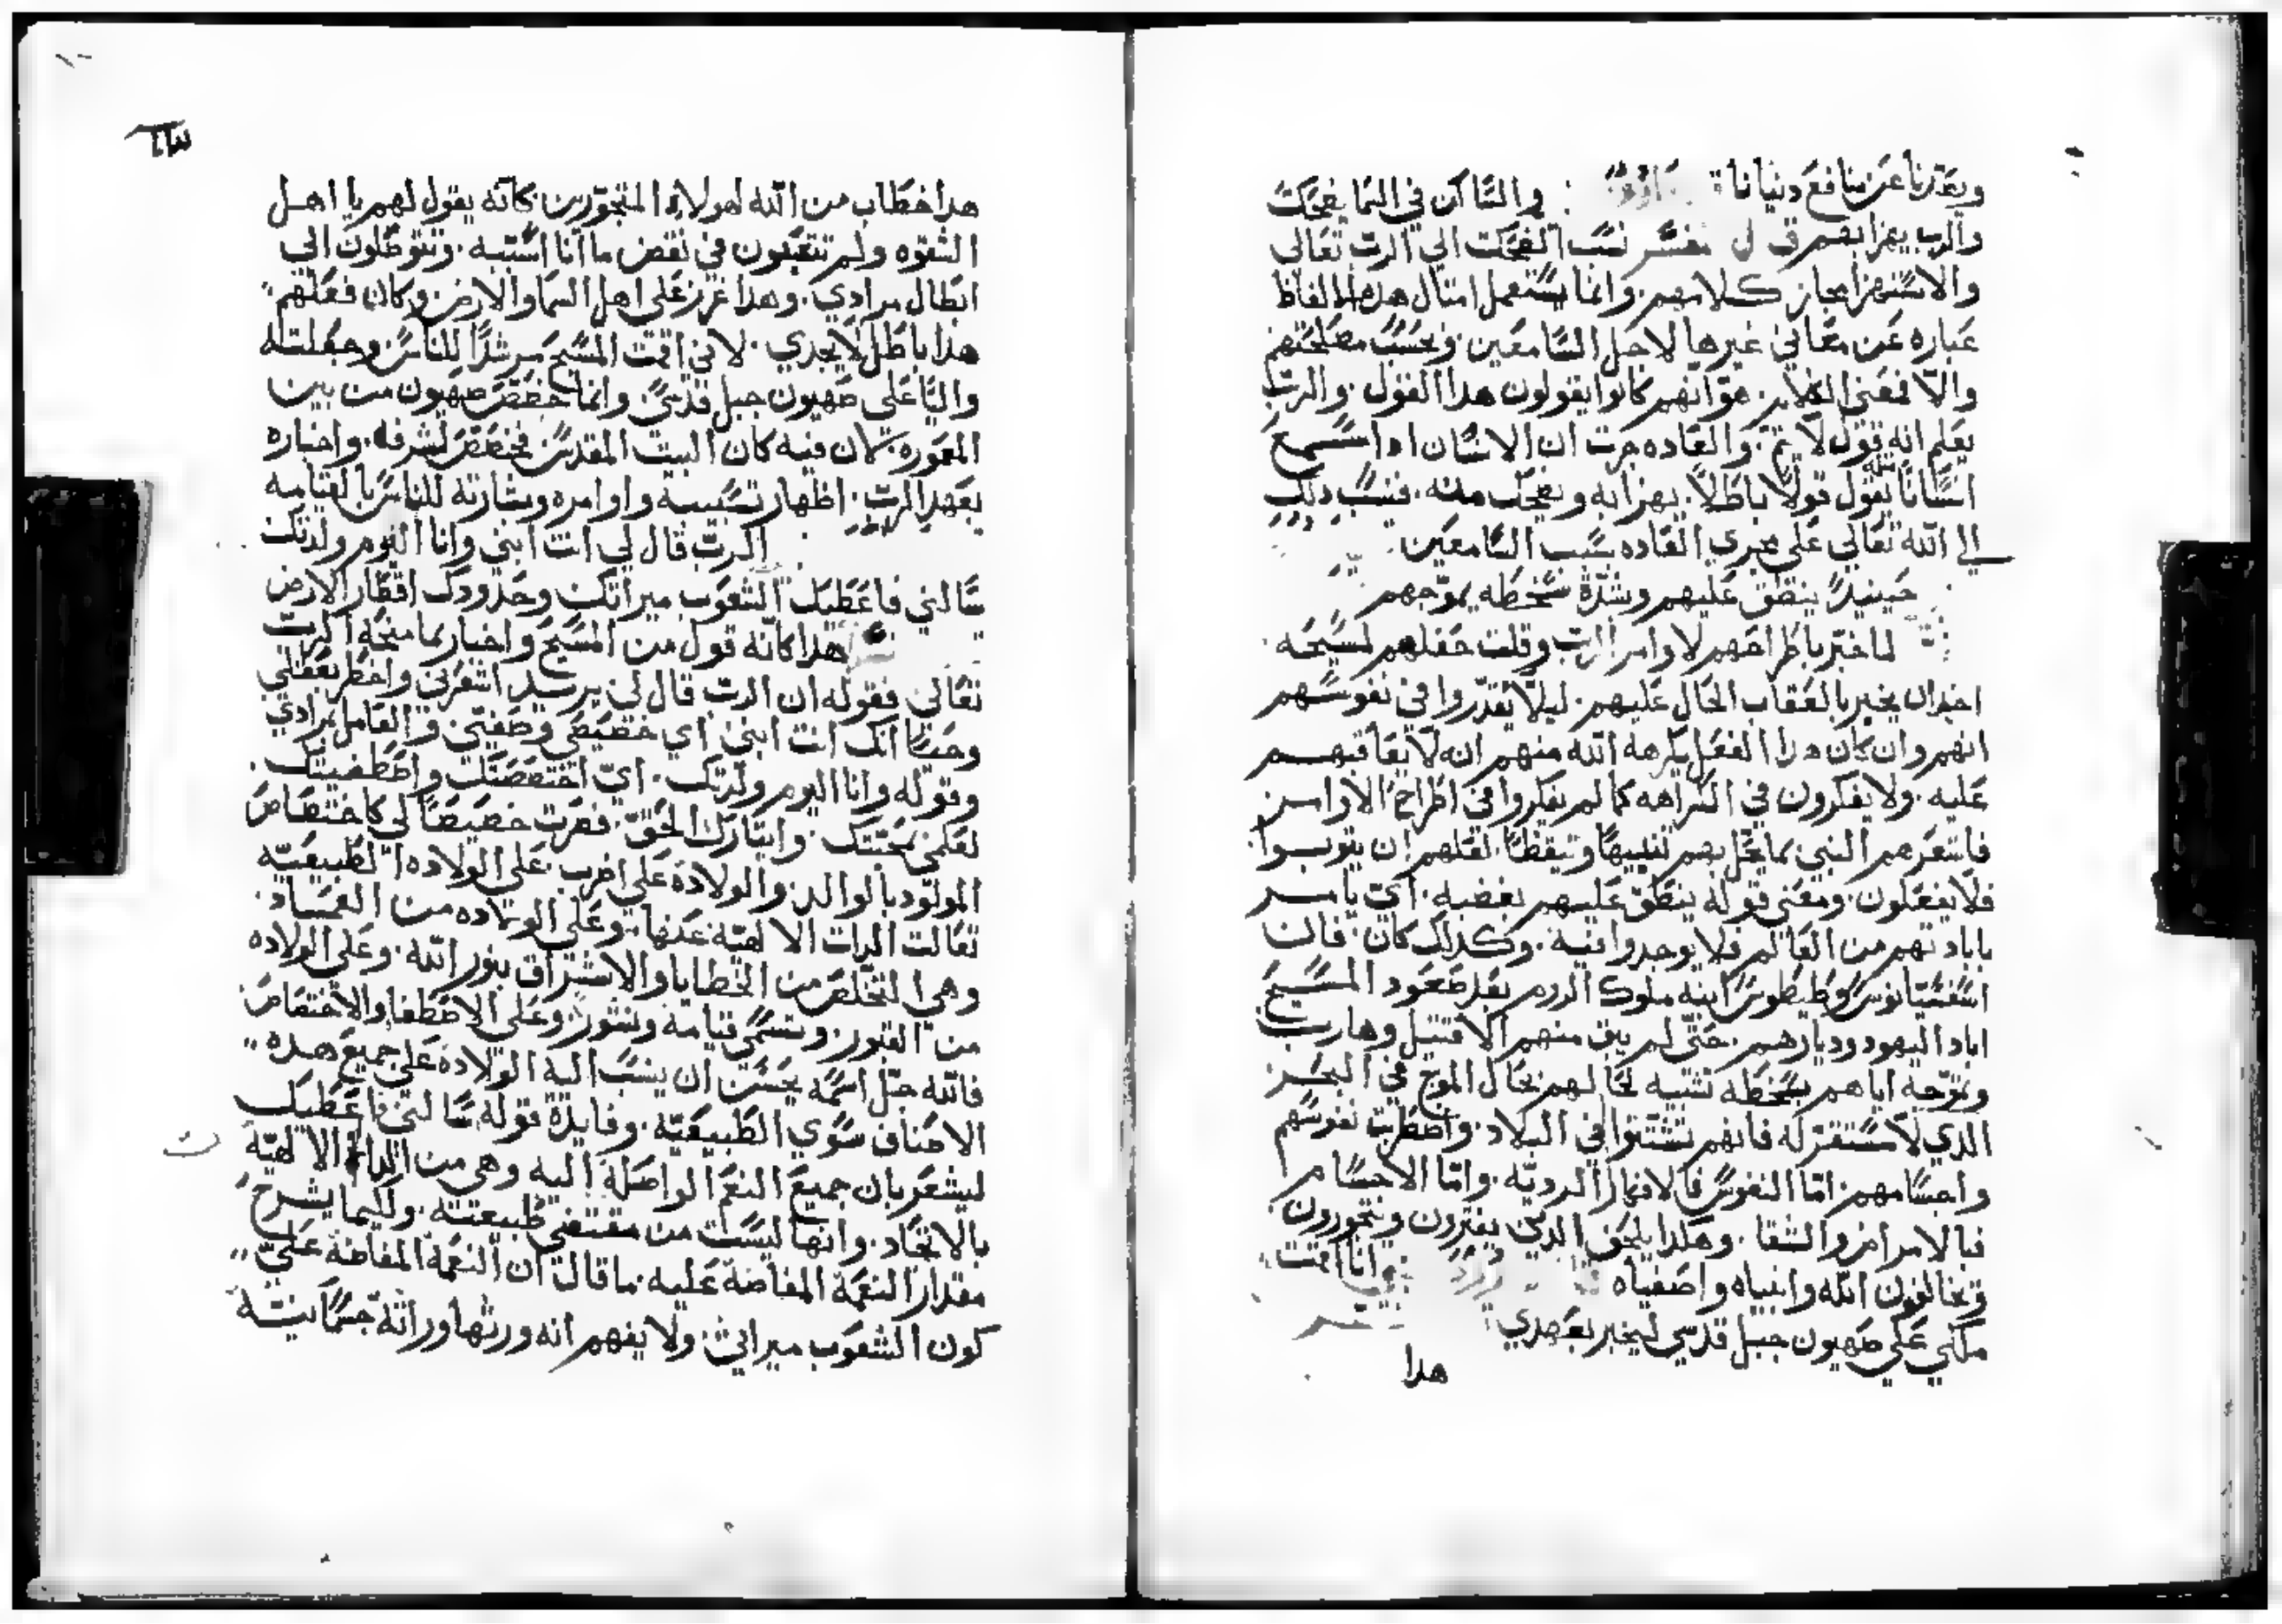 ويعدنا عن منافع دنيانا والساكن في السما يضحك
والرب يهزا بهم قال المفسر نسب الضحك الي الرب تعالى
والاستهزا مجاز كلامهم. وانما يستعمل امتال هده الالفاظ
عباره عن معاني غيرها لاجل السامعين. وبحسب مصلحتهم
والا فمعني الكلام. هو انهم كانوا يقولون هدا القول. والرب
يعلم انه قول لا يتم. والعاده جرت ان الانسان ادا سمع
انسانًا يقول قولًا باطلًا. يهزا به ويضحك منه. فنسب دلك
الي الله تعالي على مجري العاده بسبب السامعين.
حينيدٍ ينطق عليهم وبشدة سخطه يموجهم
لما خبر باطراحهم لاوامر الرب وقلت حفلهم لمسيحه
اخد ان يخبر بالعقاب الحال عليهم. ليلا يقدروا في نفوسهم
انهم وان كان هدا الفعل يكرهه الله منهم انه لا يعاقبهم
عليه. ولا يفكرون في الكراهه كما لم يفكروا في اطراح الاوامر
فاشعرهم النبي بما يحل بهم تنبيهًا وتيقظًا. لعلهم ان يتوبوا.
فلا يفعلون. ومعني قوله ينطق عليهم بغضبه. اي يامر
بابادتهم من العالم فلا يوجدوا فيه. وكدلك كان. فان
اسفسيانوس وطيطوس ابنه ملوك الروم بعد صعود المسيح
ابادا اليهود وديارهم. حتى لم يبق منهم الا قتيل وهارب
وتموجه اياهم بسخطه تشبيه لحالهم بحال الموج في البحر
الدي لا مستقر له فانهم تشتتوا في البلاد. واضطربت نفوسهم
واجسامهم. اما النفوس فبالافكار الرديه. واما الاجسام
فبالامراض والشقا. وهكدا يلحق الدين يفترون ويتجورون
ويخالفون الله وانبياه واصفياه وانا اقمت
ملكي على صهيون جبل قدسي ليخبر بعهدي
هدا
هدا خطاب من الله لهولاء المتجورين كانه يقول لهم يا اهل
الشقوه ولم تتعبون في نقض ما انا اسببه. وتتوصلون الي
ابطال مرادي. وهدا غرز على اهل السما والارض وكان فعلهم
هدا باطل لا يجدي. لاني اقمت المسيح مرشدًا للناس وجعلته
واليًا على صهيون جبل قدسي. وانما خصص صهيون من بين
المعموره. لان فيه كان البيت المقدس فخصص لشرفه. واخباره
بعهد الرب. اظهار تسبيبه واوامره وبشارته للناس بالقيامه
الرب قال لي انت ابني وانا اليوم ولدتك
سالني فاعطيك الشعوب ميراتك وحدودك اقطار الارض
هدا كانه قول من المسيح واخبار بما منحه الرب
تعالي فقوله ان الرب قال لي يريد اشعرني واخطر بعقلي
وحسنا انك انت ابني اي خصيصي وصفيي. والعامل بمرادي
وقوله وانا اليوم ولدتك. اي اختصصتك واصطفيتك.
لعلمي بمحبتك وايتارك الحق. فصرت خصيصًا لي كاختصاص
المولود بالوالد. والولادة على اضرب. على الولاده الطبيعيه
تعالت الدات الالهيه عنها. وعلى الولاده من الفساد.
وهي التخلص من الخطايا والاشراق بنور الله. وعلى الولاده
من القبور. وتسمي قيامه ونشور. وعلى الاصطفا والاختصاص.
فالله جل اسمه يحسن ان ينسب اليه الولادة على جميع هده
الاصناف سوي الطبيعيه. وفايدة قوله سالني فاعطيك
ليشعر بان جميع النعم الواصلة اليه وهي من الدات الالهيه
بالاتحاد. وانها ليست من مقتضي طبيعته. ولكيما يشرح
مقدار النعمة المفاضة عليه. ما قال ان النعمة المفاضة علي
كون الشعوب ميراتي. ولا يفهم انه ورتها وراتة جسمانيه